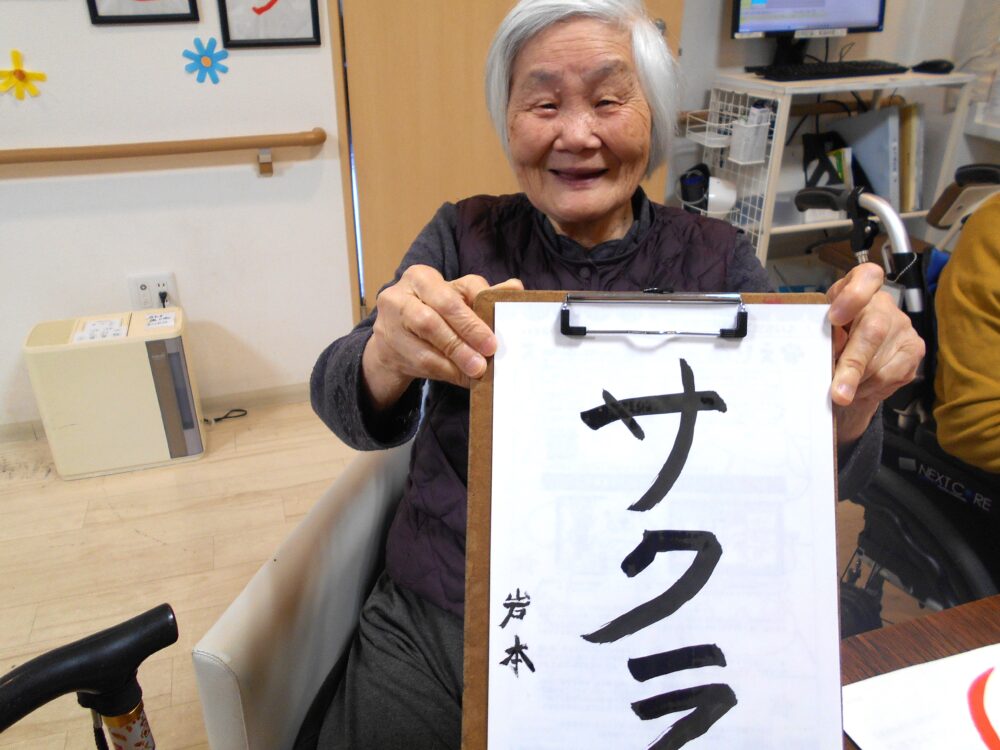 サクラ
岩本
NEXT CORE